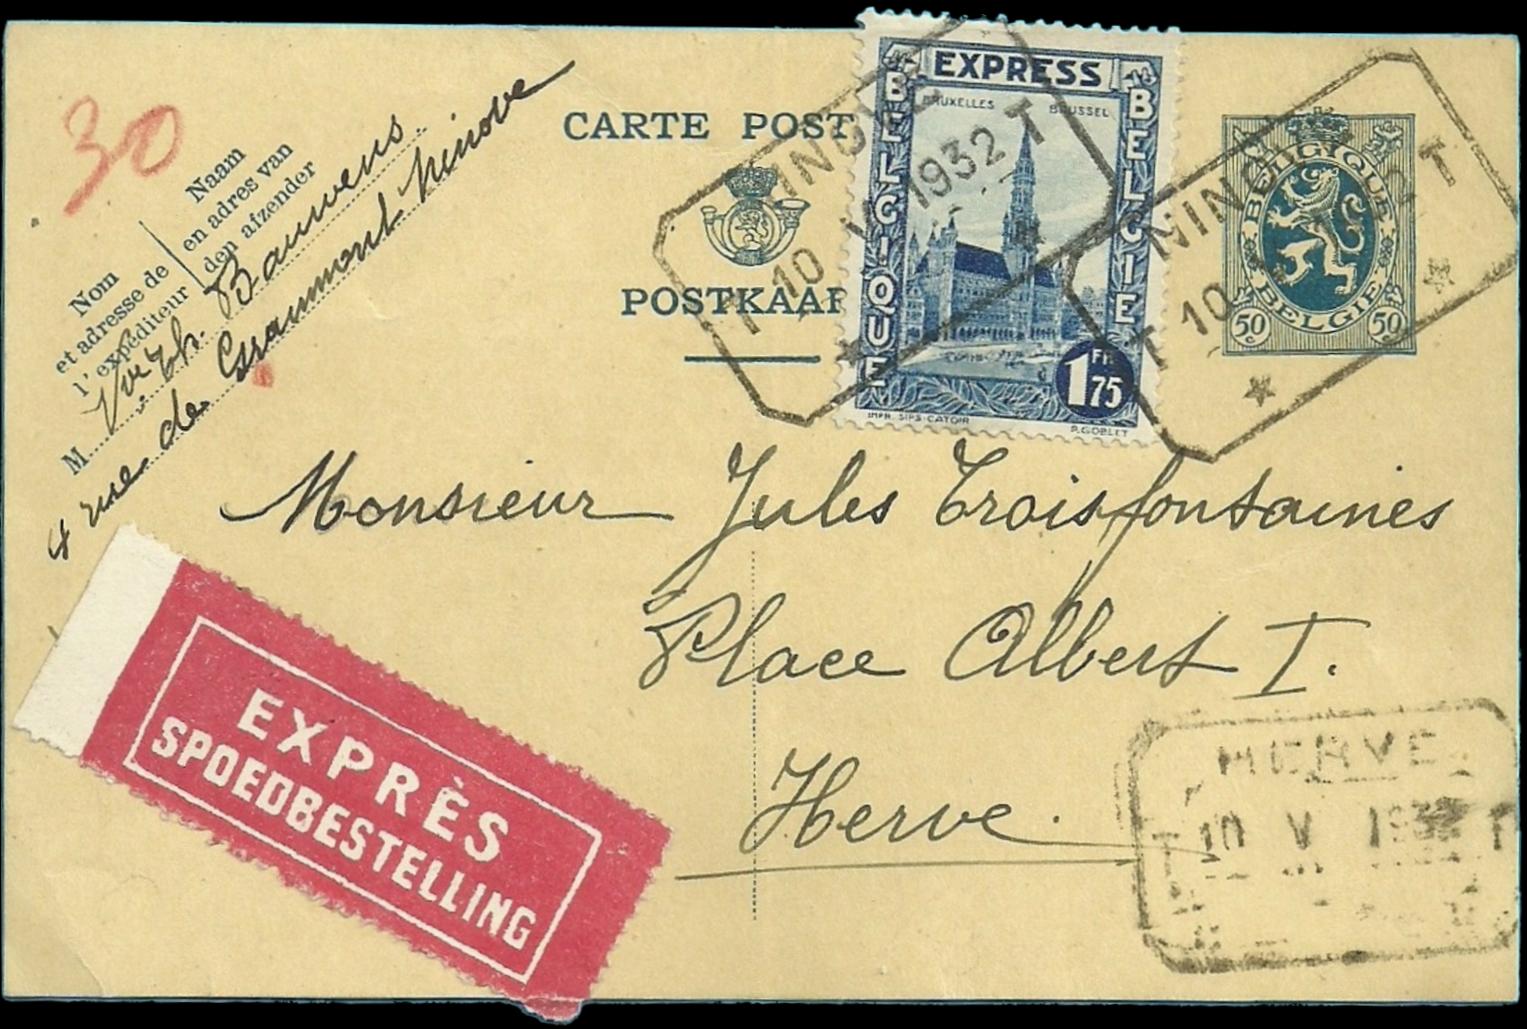 30
Naam
en adres van
den afzender
Nom
et adresse de
l'expéditeur
M. Vve Th. Bauwens
4 rue de Grammont Ninove
CARTE POST
POSTKAAR
EXPRESS
BRUXELLES BRUSSEL
BELGIQUE
BELGIE
1 FR 75
IMPR. SIPS-CATOIR P. GOBLET
NINOVE
T 10 V 1932 T
BELGIQUE
BELGIE
50c 50c
NINO
T 10 32 T
Monsieur Jules Troisfontaines
Place Albert I.
Herve.
EXPRÈS
SPOEDBESTELLING
HERVE
T 10 V 1932 T